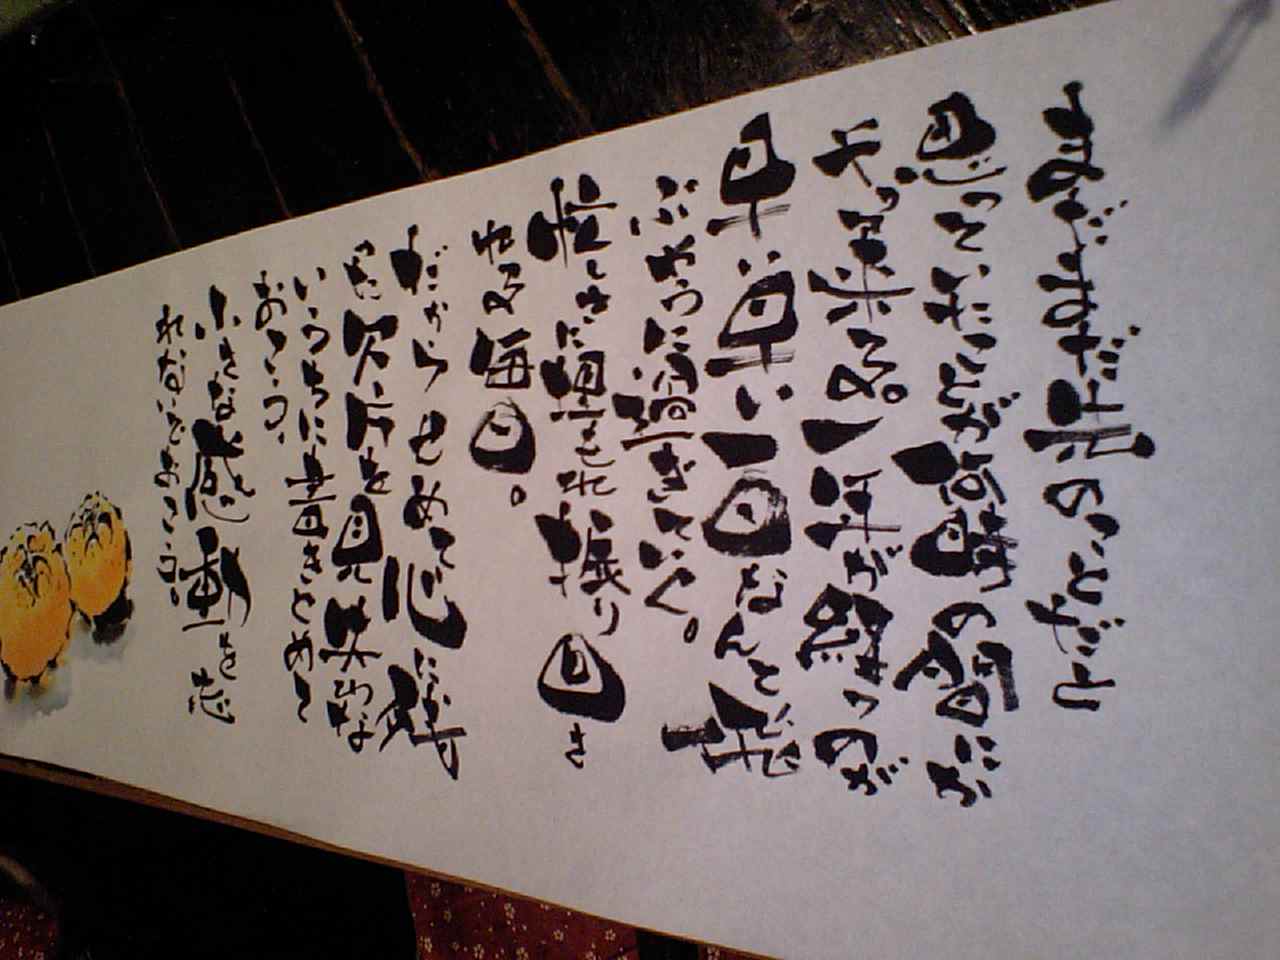 まだまだ先のことだと
思っていたことが何時の間にか
やって来る。一年が経つのが
早い早い一日なんて飛
ぶように過ぎていく。
忙しさに埋もれ振り回さ
れる毎日。
だからせめて心に残
った欠片を見失わな
いうちに書きとめて
おこう、
小さな感動を忘
れないでおこう。